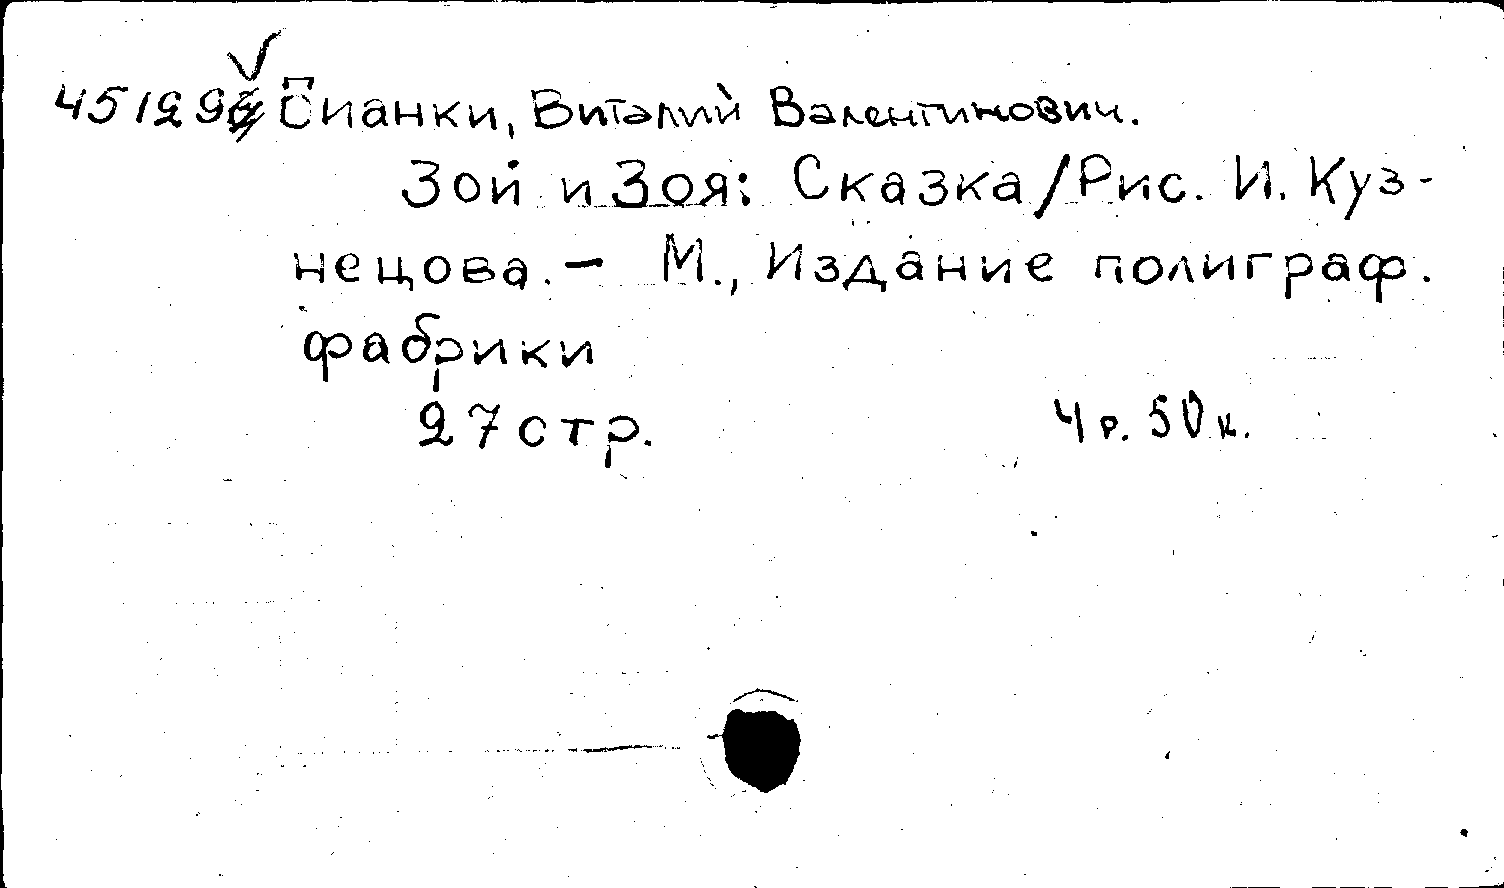 Бианки, Виталий Валентинович.
Зой и Зоя: Сказка/Рис. И. Куз-
нецова. — М., Издание полиграф.
фабрики
27 стр. 4 р. 50 к.